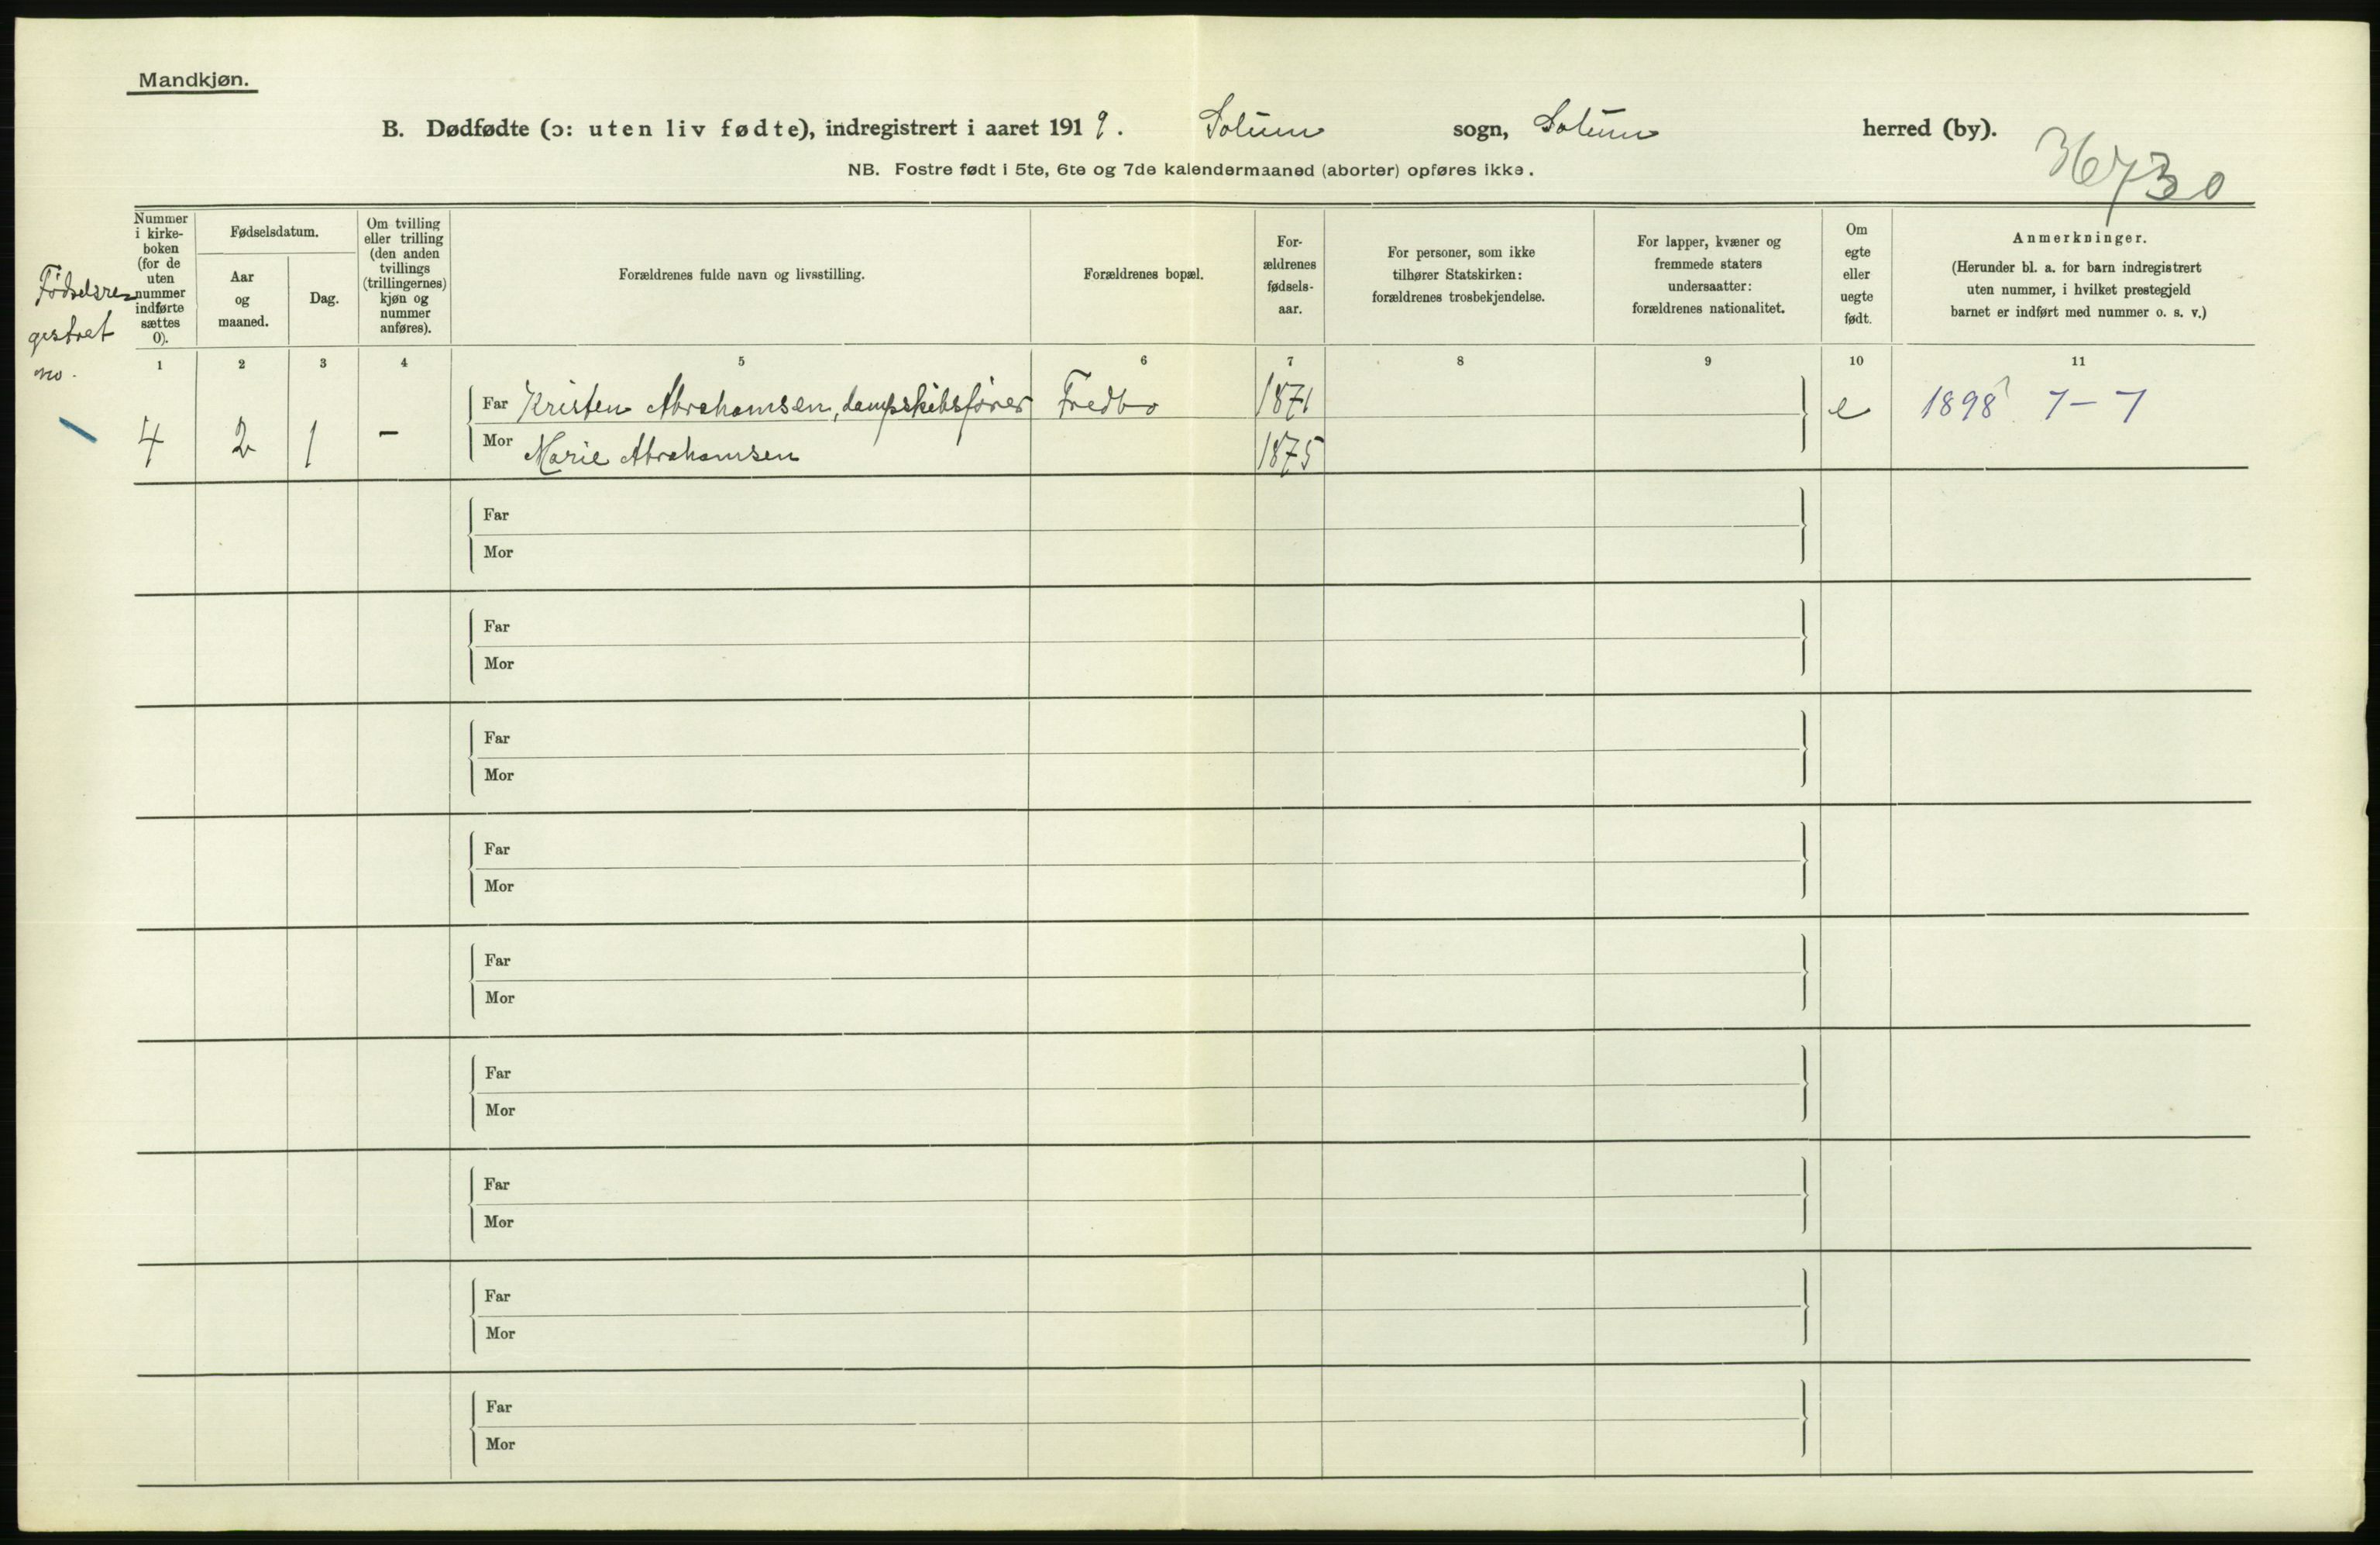 Mandkjøn.
B. Dødfødte (ɔ: uten liv fødte), indregistrert i aaret 1919. Solum sogn, Solum herred (by).
36730
NB. Fostre født i 5te, 6te og 7de kalendermaaned (aborter) opføres ikke.
Fødselsre
gestret
no.
Nummer
i kirke-
boken
(for de
uten
nummer
indførte
sættes
0).
Fødselsdatum.
Aar
og
maaned.
Dag.
Om tvilling
eller trilling
(den anden
tvillings
(trillingernes)
kjøn og
nummer
anføres).
Forældrenes fulde navn og livsstilling.
Forældrenes bopæl.
For-
ældrenes
fødsels-
aar.
For personer, som ikke
tilhører Statskirken:
forældrenes trosbekjendelse.
For lapper, kvæner og
fremmede staters
undersaatter:
forældrenes nationalitet.
Om
egte
eller
uegte
født.
Anmerkninger.
(Herunder bl. a. for barn indregistrert
uten nummer, i hvilket prestegjeld
barnet er indført med nummer o. s. v.)
1 2 3 4 5 6 7 8 9 10 11
Far Kristen Abrahamsen, dampskibsfører Fredbo 1871 e 1898 7 – 7
4 2 1 –
Mor Marie Abrahamsen 1875
Far
Mor
Far
Mor
Far
Mor
Far
Mor
Far
Mor
Far
Mor
Far
Mor
Far
Mor
Far
Mor